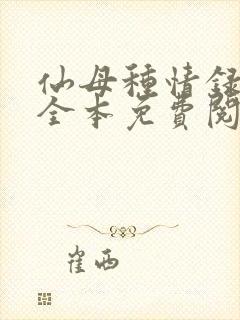 仙母種情録
全本免費閱
崔西